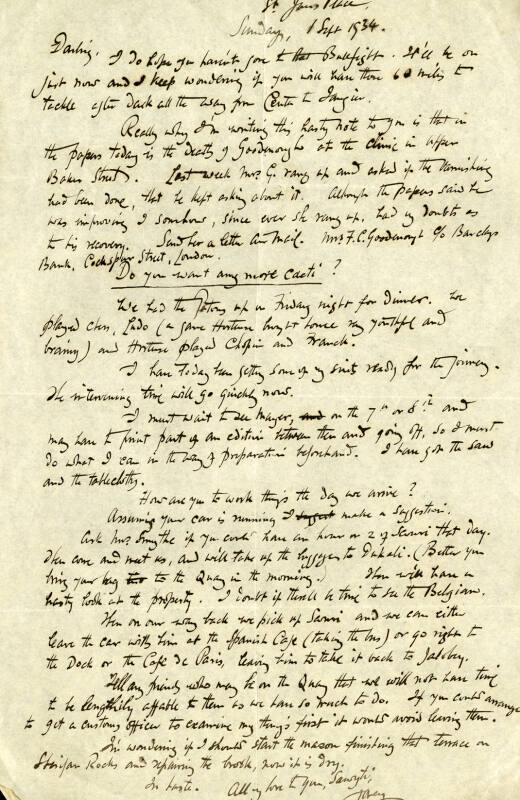 St Jans Place.
Sunday, 1 Sept 1934.
Darling,
I do hope you haven't gone to that Bullfight. It'll be on
just now and I keep wondering if you will have those 60 miles to
tackle after dark all the way from Ceuta to Tangier.
Really why I'm writing this hasty note to you is that in
the papers today is the death of Goodenough at the clinic in upper
Baker Street. Last week Mrs. G. rang up and asked if the varnishing
had been done, that he kept asking about it. Although the papers said he
was improving I somehow, since ever she rang up, had my doubts as
to his recovery. Send her a letter Air Mail. Mrs F.C. Goodenough c/o Barclays
Bank, Cockspur Street, London.
Do you want any more cacti?
We had the up on Friday night for Dinner. We
played chess, Ludo (a game Hortense bought home very youthful and
brainy) and Hortense played Chopin and Franck.
I have today been getting some of my suits ready for the journey.
The intervening time will go quickly now.
I must wait to see Mayer, on the 7th or 8th and
may have to print part of an edition between then and going off, so I must
do what I can in the way of preparation beforehand. I have got the saw
and the tablecloths.
How are you to work things the day we arrive?
Assuming your car is running I suggest make a suggestion.
Ask Mrs. Smythe if you could have an hour or 2 of that day.
Then come and meet us, and will take up the luggage to . (Better you
bring your bag too to the Quay in the morning.) Then will have a
hasty look at the property. I doubt if there'll be time to see the Belgian.
Then on our way back we pick up and we can either
leave the car with him at the Spanish Cafe (taking the bus) or go right to
the Dock or the Cafe de Paris, leaving him to take it back to .
Tell any friends who may be on the Quay that we will not have time
to be lengthily affable to them as we have so much to do. If you could arrange
to get a customs officer to examine my things first it would avoid leaving them.
I'm wondering if I should start the mason finishing that terrace on
Rocks and repairing the , now it is dry.
In haste. All my love to you,